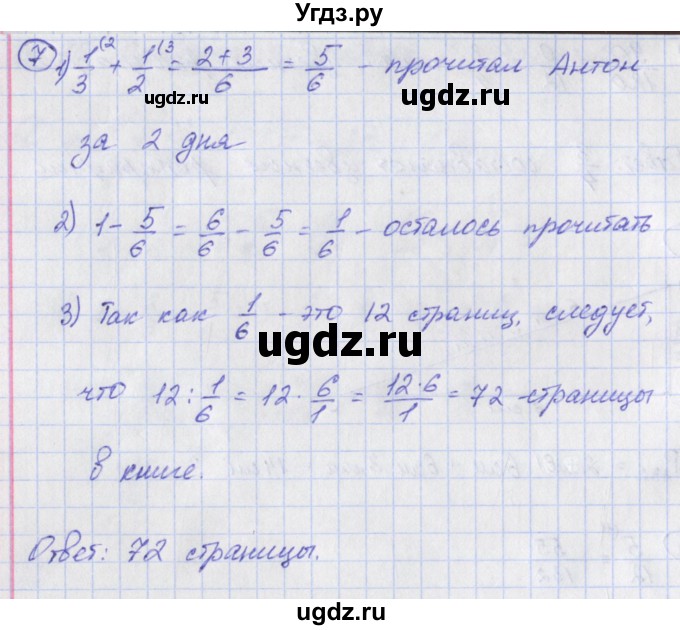 Угдз.ру
7 1) 1/3 (2 + 1/2 (3 = (2+3)/6 = 5/6 - прочитал Антон
ugdz.ru ugdz.ru
за 2 дня
2) 1 - 5/6 = 6/6 - 5/6 = 1/6 - осталось прочитать
ugdz.ru
3) Так как 1/6 - это 12 страниц, следует,
ugdz.ru ugdz.ru
что 12 : 1/6 = 12 · 6/1 = (12·6)/1 = 72 - страницы
в книге.
ugdz.ru
Ответ: 72 страницы.
ugdz.ru